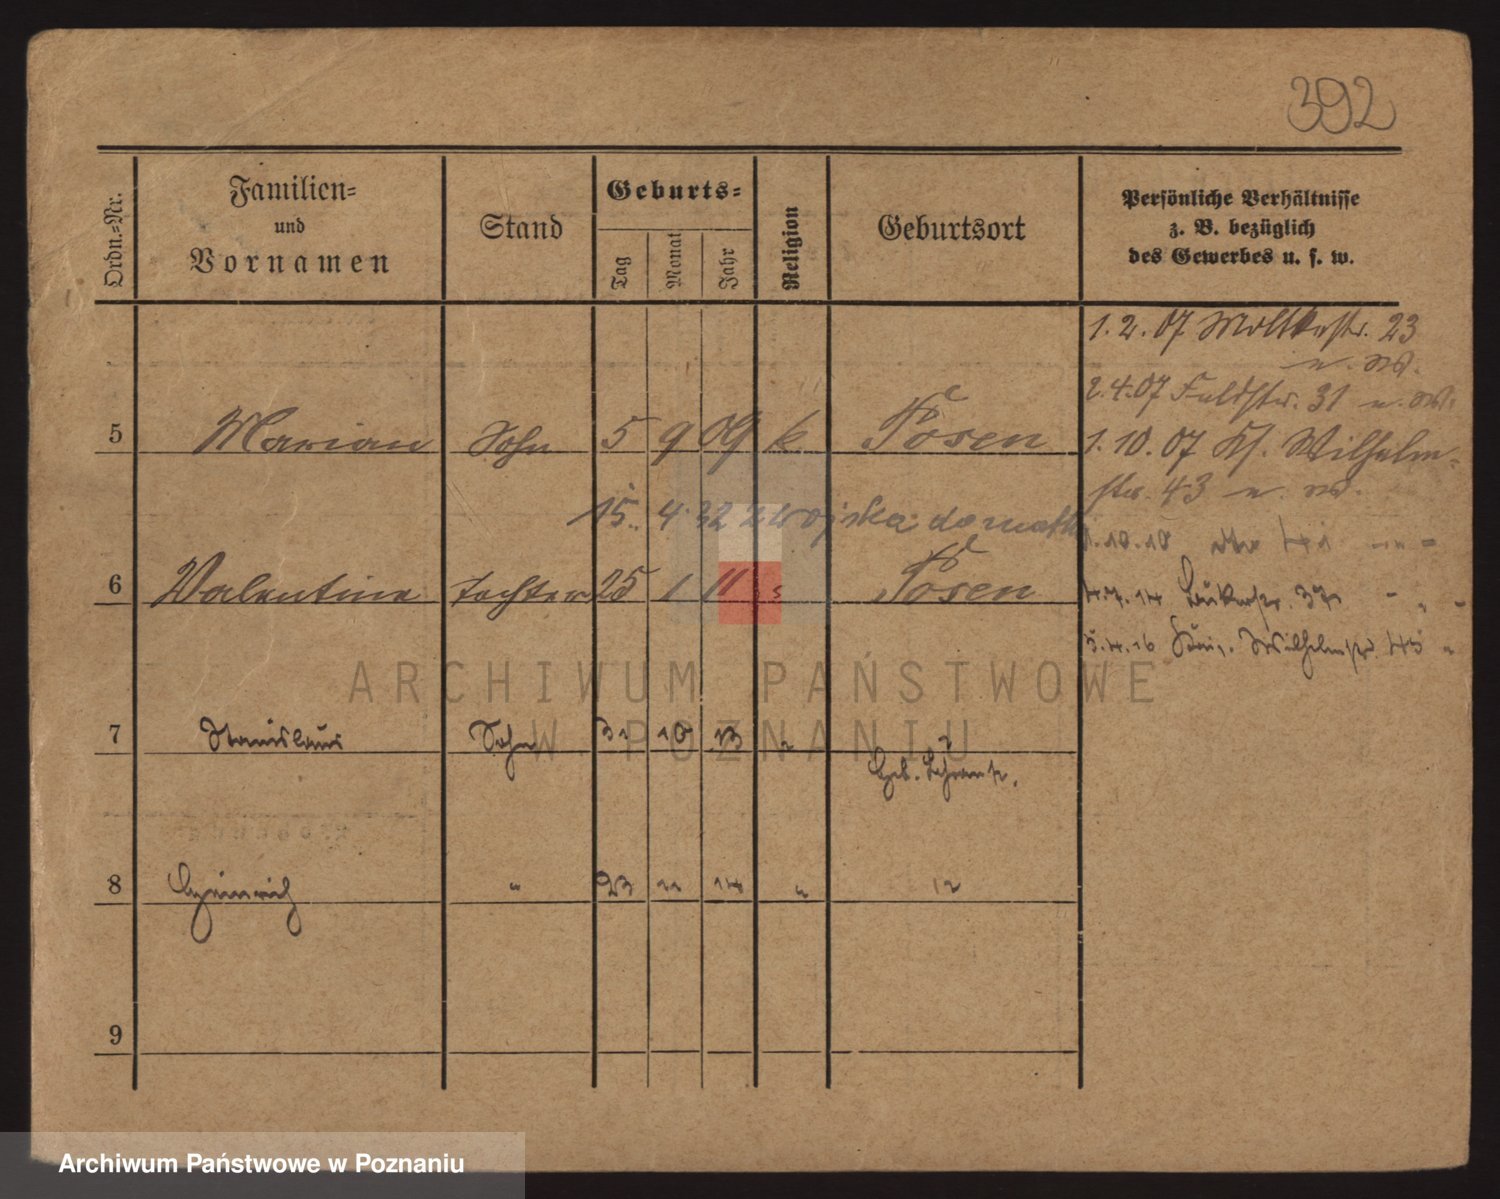 392
Ordn.=Nr.
Familien=
und
Vornamen
Stand
Geburts=
Tag
Monat
Jahr
Religion
Geburtsort
Persönliche Verhältnisse
z. B. bezüglich
des Gewerbes u. s. w.
1. 2. 07 Moltkestr. 23
2. 4. 07 Feldstr. 31
5 Marian Sohn 5 9 09 k Posen
1. 10. 07 Wilhelm-
str. 43
15. 4. 32 z wojska do matki
1. 10. 10
6 Valentine Tochter 25 1 11 " Posen
37
5. 4. 16 Wilhelmstr. 45 "
ARCHIWUM PAŃSTWOWE
W POZNANIU
7 Stanislaus Sohn 31 10 13 "
8 Heinrich " 23 11 14 "
9
Archiwum Państwowe w Poznaniu